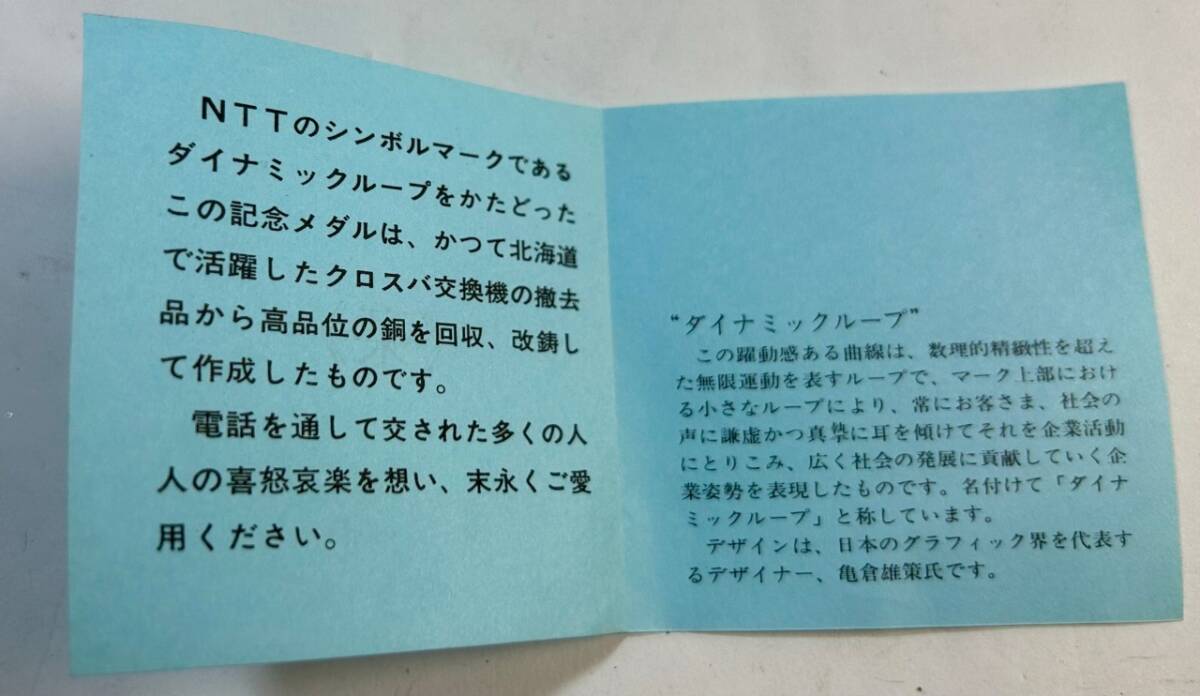 NTTのシンボルマークである
ダイナミックループをかたどった
この記念メダルは、かつて北海道
で活躍したクロスバ交換機の撤去
品から高品位の銅を回収、改鋳し
て作成したものです。
電話を通して交された多くの人
人の喜怒哀楽を想い、末永くご愛
用ください。
“ダイナミックループ”
この躍動感ある曲線は、数理的精緻性を超え
た無限運動を表すループで、マーク上部におけ
る小さなループにより、常にお客さま、社会の
声に謙虚かつ真摯に耳を傾けてそれを企業活動
にとりこみ、広く社会の発展に貢献していく企
業姿勢を表現したものです。名付けて「ダイナ
ミックループ」と称しています。
デザインは、日本のグラフィック界を代表す
るデザイナー、亀倉雄策氏です。